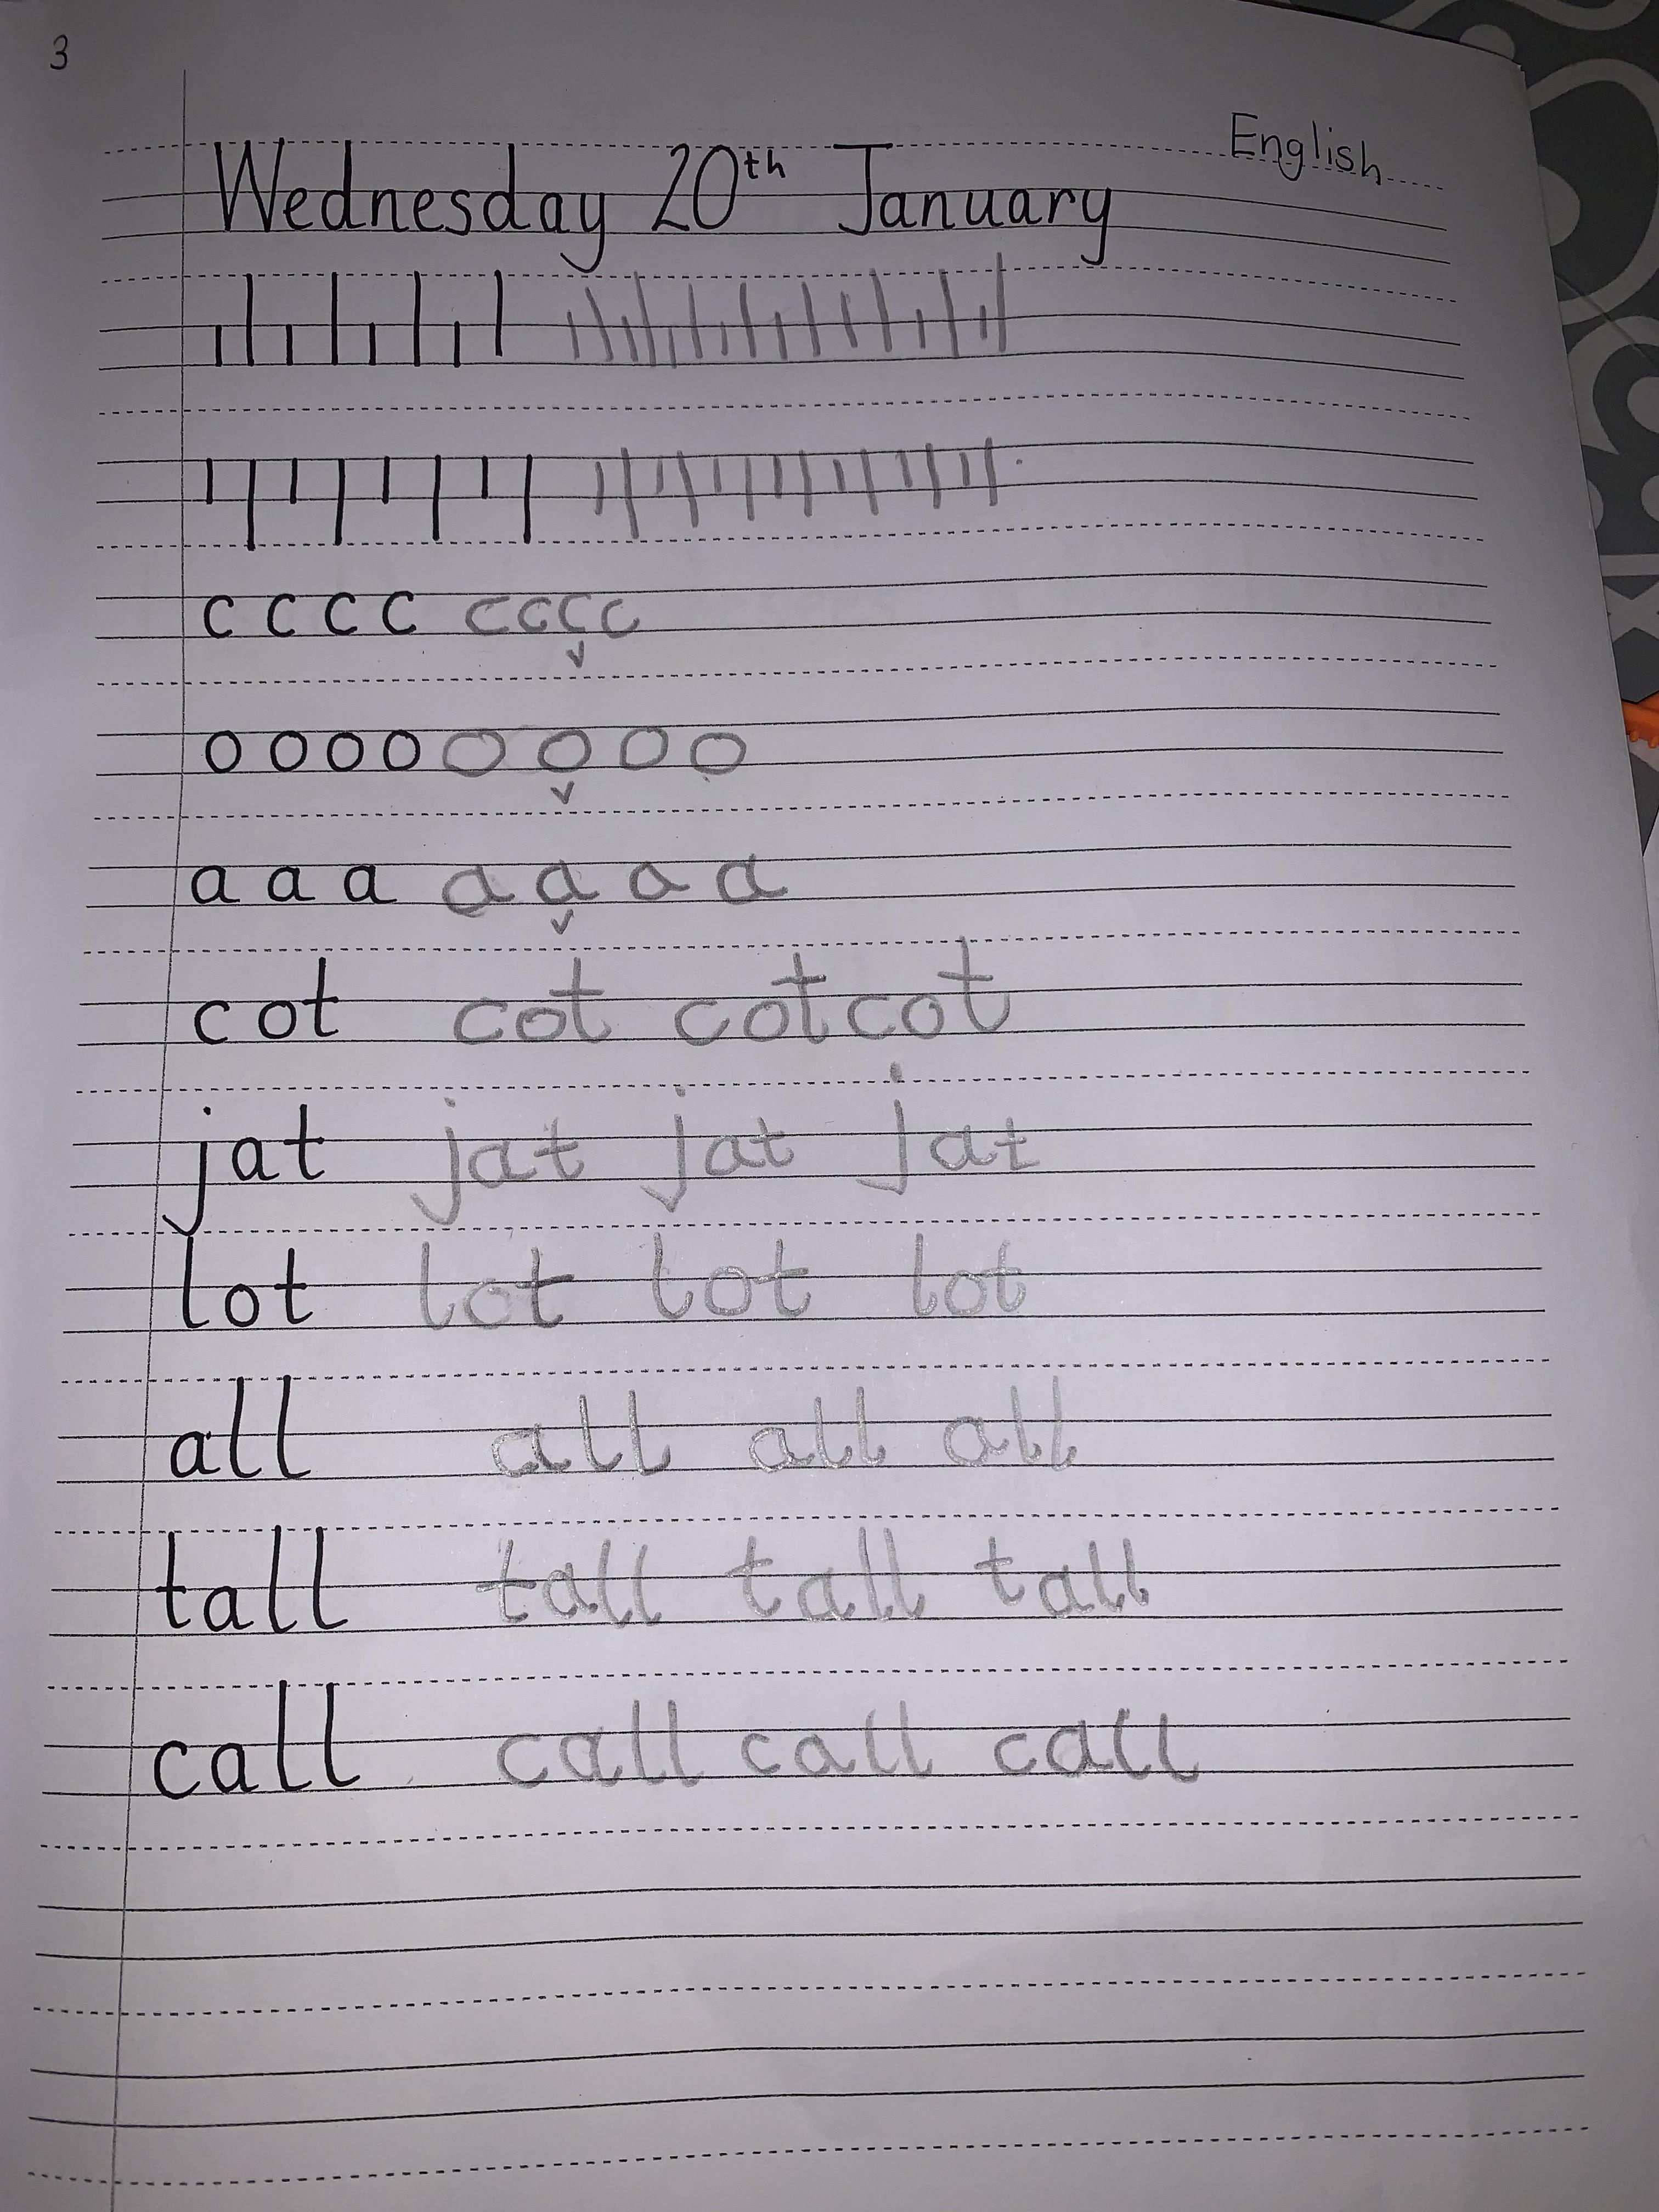 3
English
Wednesday 20th January
c c c c c c c c
o o o o o o o o
a a a a a a a
cot cot cot cot
jat jat jat jat
lot lot lot lot
all all all all
tall tall tall tall
call call call call